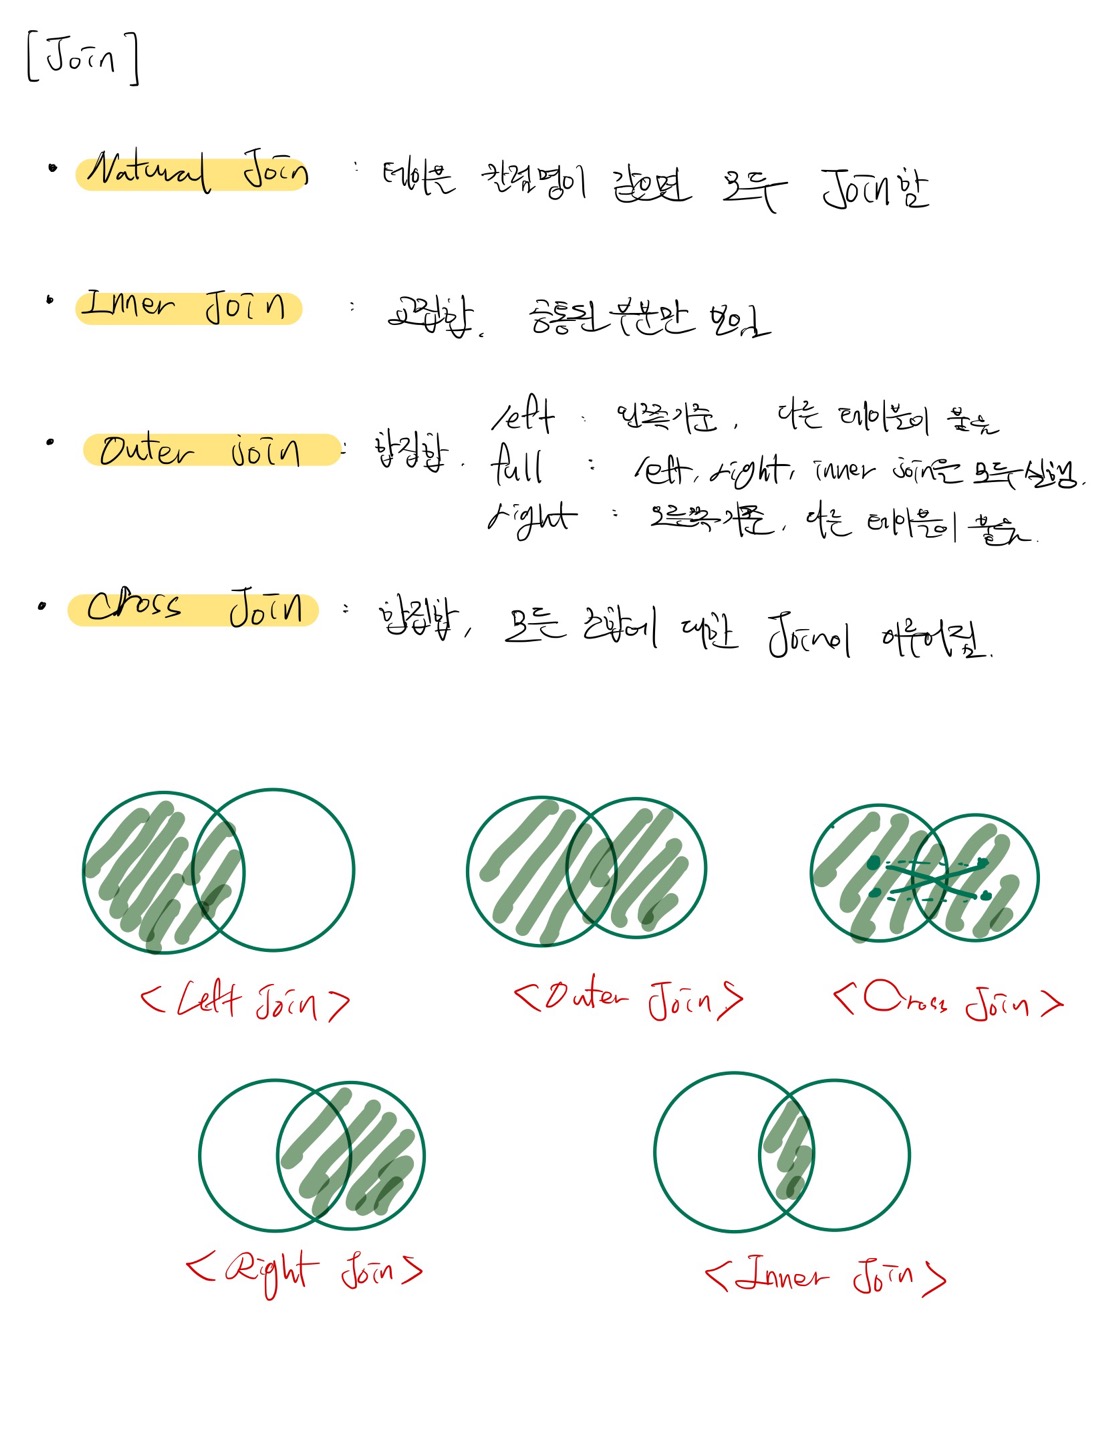 [Join]
• Natural Join : 테이블 칼럼명이 같으면 모두 Join함
• Inner Join : 교집합. 공통된 부분만 보임
left : 왼쪽기준, 다른 테이블이 붙음
• Outer join : 합집합. full : left, right, inner join을 모두 실행.
right : 오른쪽 기준, 다른 테이블이 붙음.
• Cross Join : 합집합, 모든 조합에 대한 Join이 이루어짐.
<Left Join> <Outer Join> <Cross Join>
<Right Join> <Inner Join>